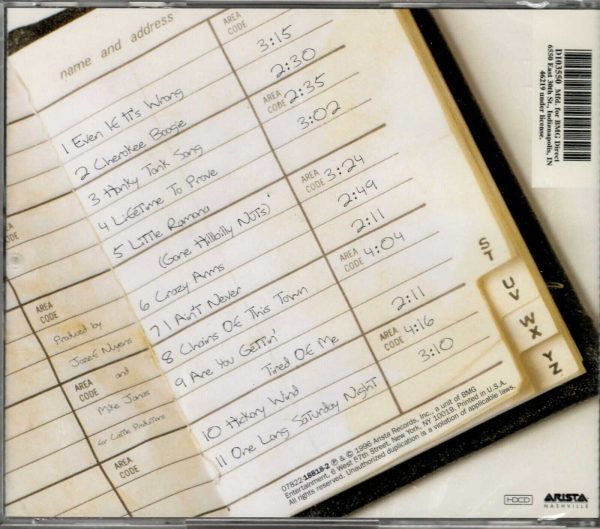 name and address
AREA
CODE
1 Even If It's Wrong 3:15
2 Cherokee Boogie 2:30
AREA
CODE
3 Honky Tonk Song 2:35
4 Lifetime To Prove 3:02
5 Little Ramona
(Gone Hillbilly Nuts)
AREA
CODE
3:24
6 Crazy Arms 2:49
7 I Ain't Never 2:11
AREA
CODE
8 Chains Of This Town 4:04
9 Are You Gettin'
Tired Of Me
2:11
AREA
CODE
10 Hickory Wind 4:16
11 One Long Saturday Night 3:10
AREA
CODE
Produced by
Jozef Nuyens
AREA
CODE
and
Mike Janas
for Castle Productions
AREA
CODE
ST
UV
WX
YZ
D103550 Mfd. for BMG Direct
6550 East 30th St., Indianapolis, IN
46219 under license.
07822-18818-2 ℗ & © 1996 Arista Records, Inc., a unit of BMG
Entertainment, 6 West 57th Street, New York, NY 10019. Printed in U.S.A.
All rights reserved. Unauthorized duplication is a violation of applicable laws.
HDCD
ARISTA
NASHVILLE